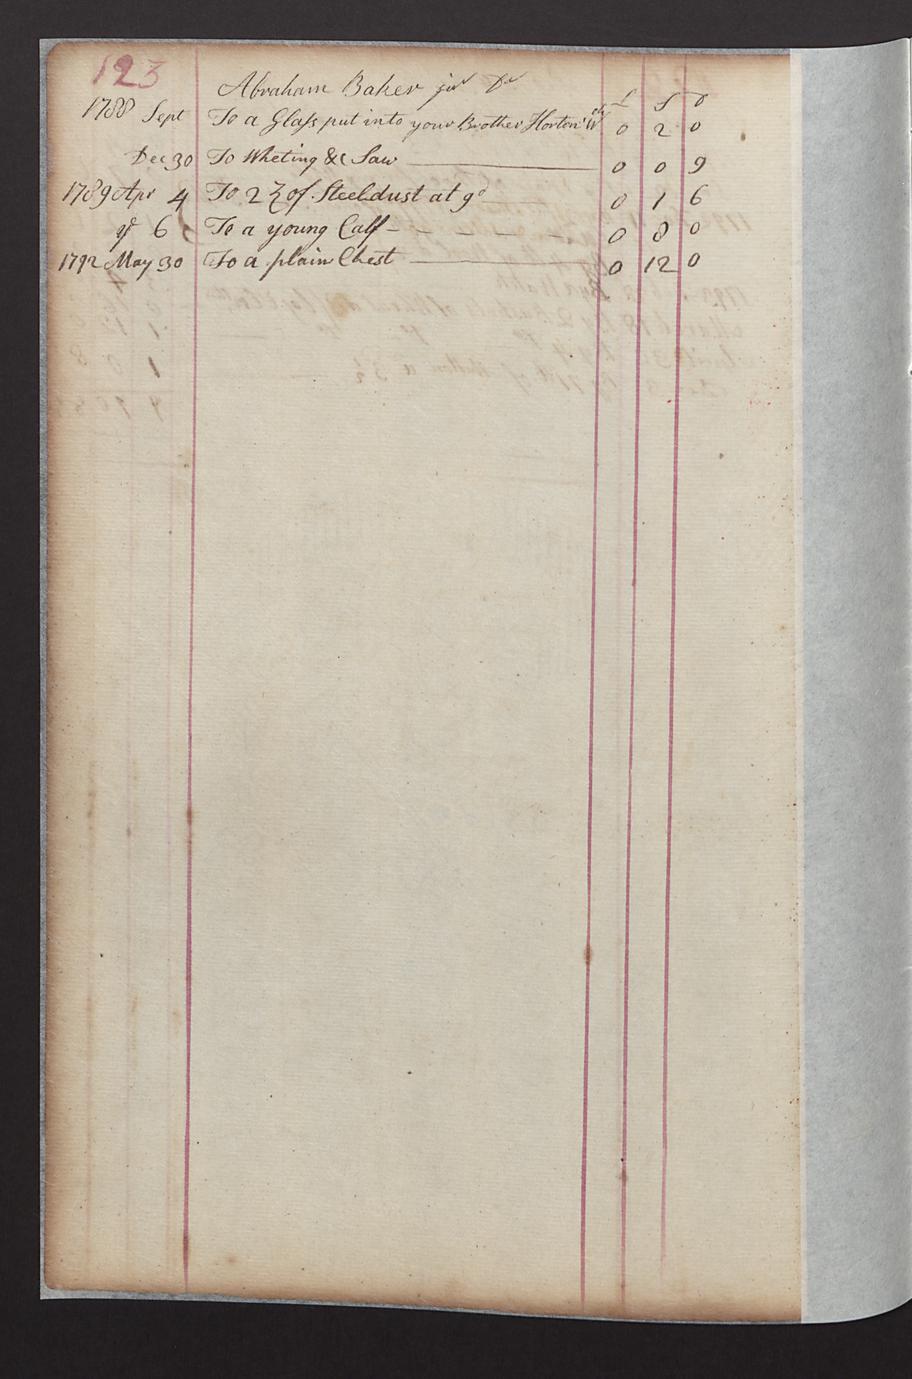 123
Abraham Baker junr Dr
£ S D
1788 Sept To a Glass put into your Brother Horton's 0 2 0
Dec 30 To Wheting &c Saw 0 0 9
1789 Apr 4 To 2 ℥ of Steeldust at 9d 0 1 6
6 To a young Calf - - - - 0 8 0
1792 May 30 To a plain Chest 0 12 0